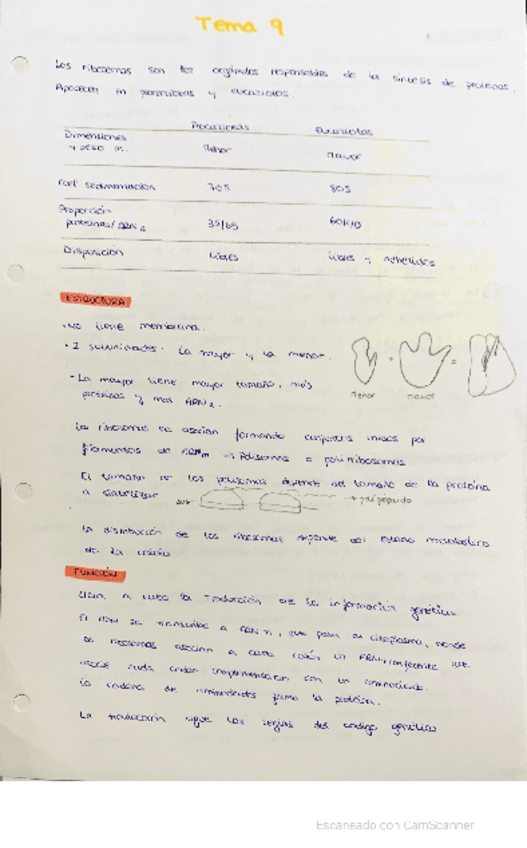 Tema 9
Los ribosomas son los orgánulos responsables de la síntesis de proteínas.
Aparecen en procariotas y eucariotas.
Procariotas Eucariotas
Dimensiones
y peso m. Menor Mayor
Coef sedimentación 70S 80S
Proporción
proteínas/ARNr 35/65 60/40
Disposición Libres Libres y adheridos
ESTRUCTURA
·No tiene membrana.
·2 subunidades. La mayor y la menor.
-La mayor tiene mayor tamaño, más
proteínas y mas ARNr.
+ =
Menor Mayor
Los ribosomas se asocian formando conjuntos unidos por
filamentos de ARNm → Polisomas o polirribosomas
El tamaño de los polisomas depende del tamaño de la proteína
a sintetizar
La distribución de los ribosomas depende del estado metabólico
de la célula
FUNCIÓN
Llevan a cabo la traducción de la información genética
El ADN se transcribe a ARNm, que pasa al citoplasma, donde
asocia cada codón complementario con un aminoácido.
La cadena de aminoácidos forma la proteína.
La traducción sigue las reglas del código genético
Escaneado con CamScanner